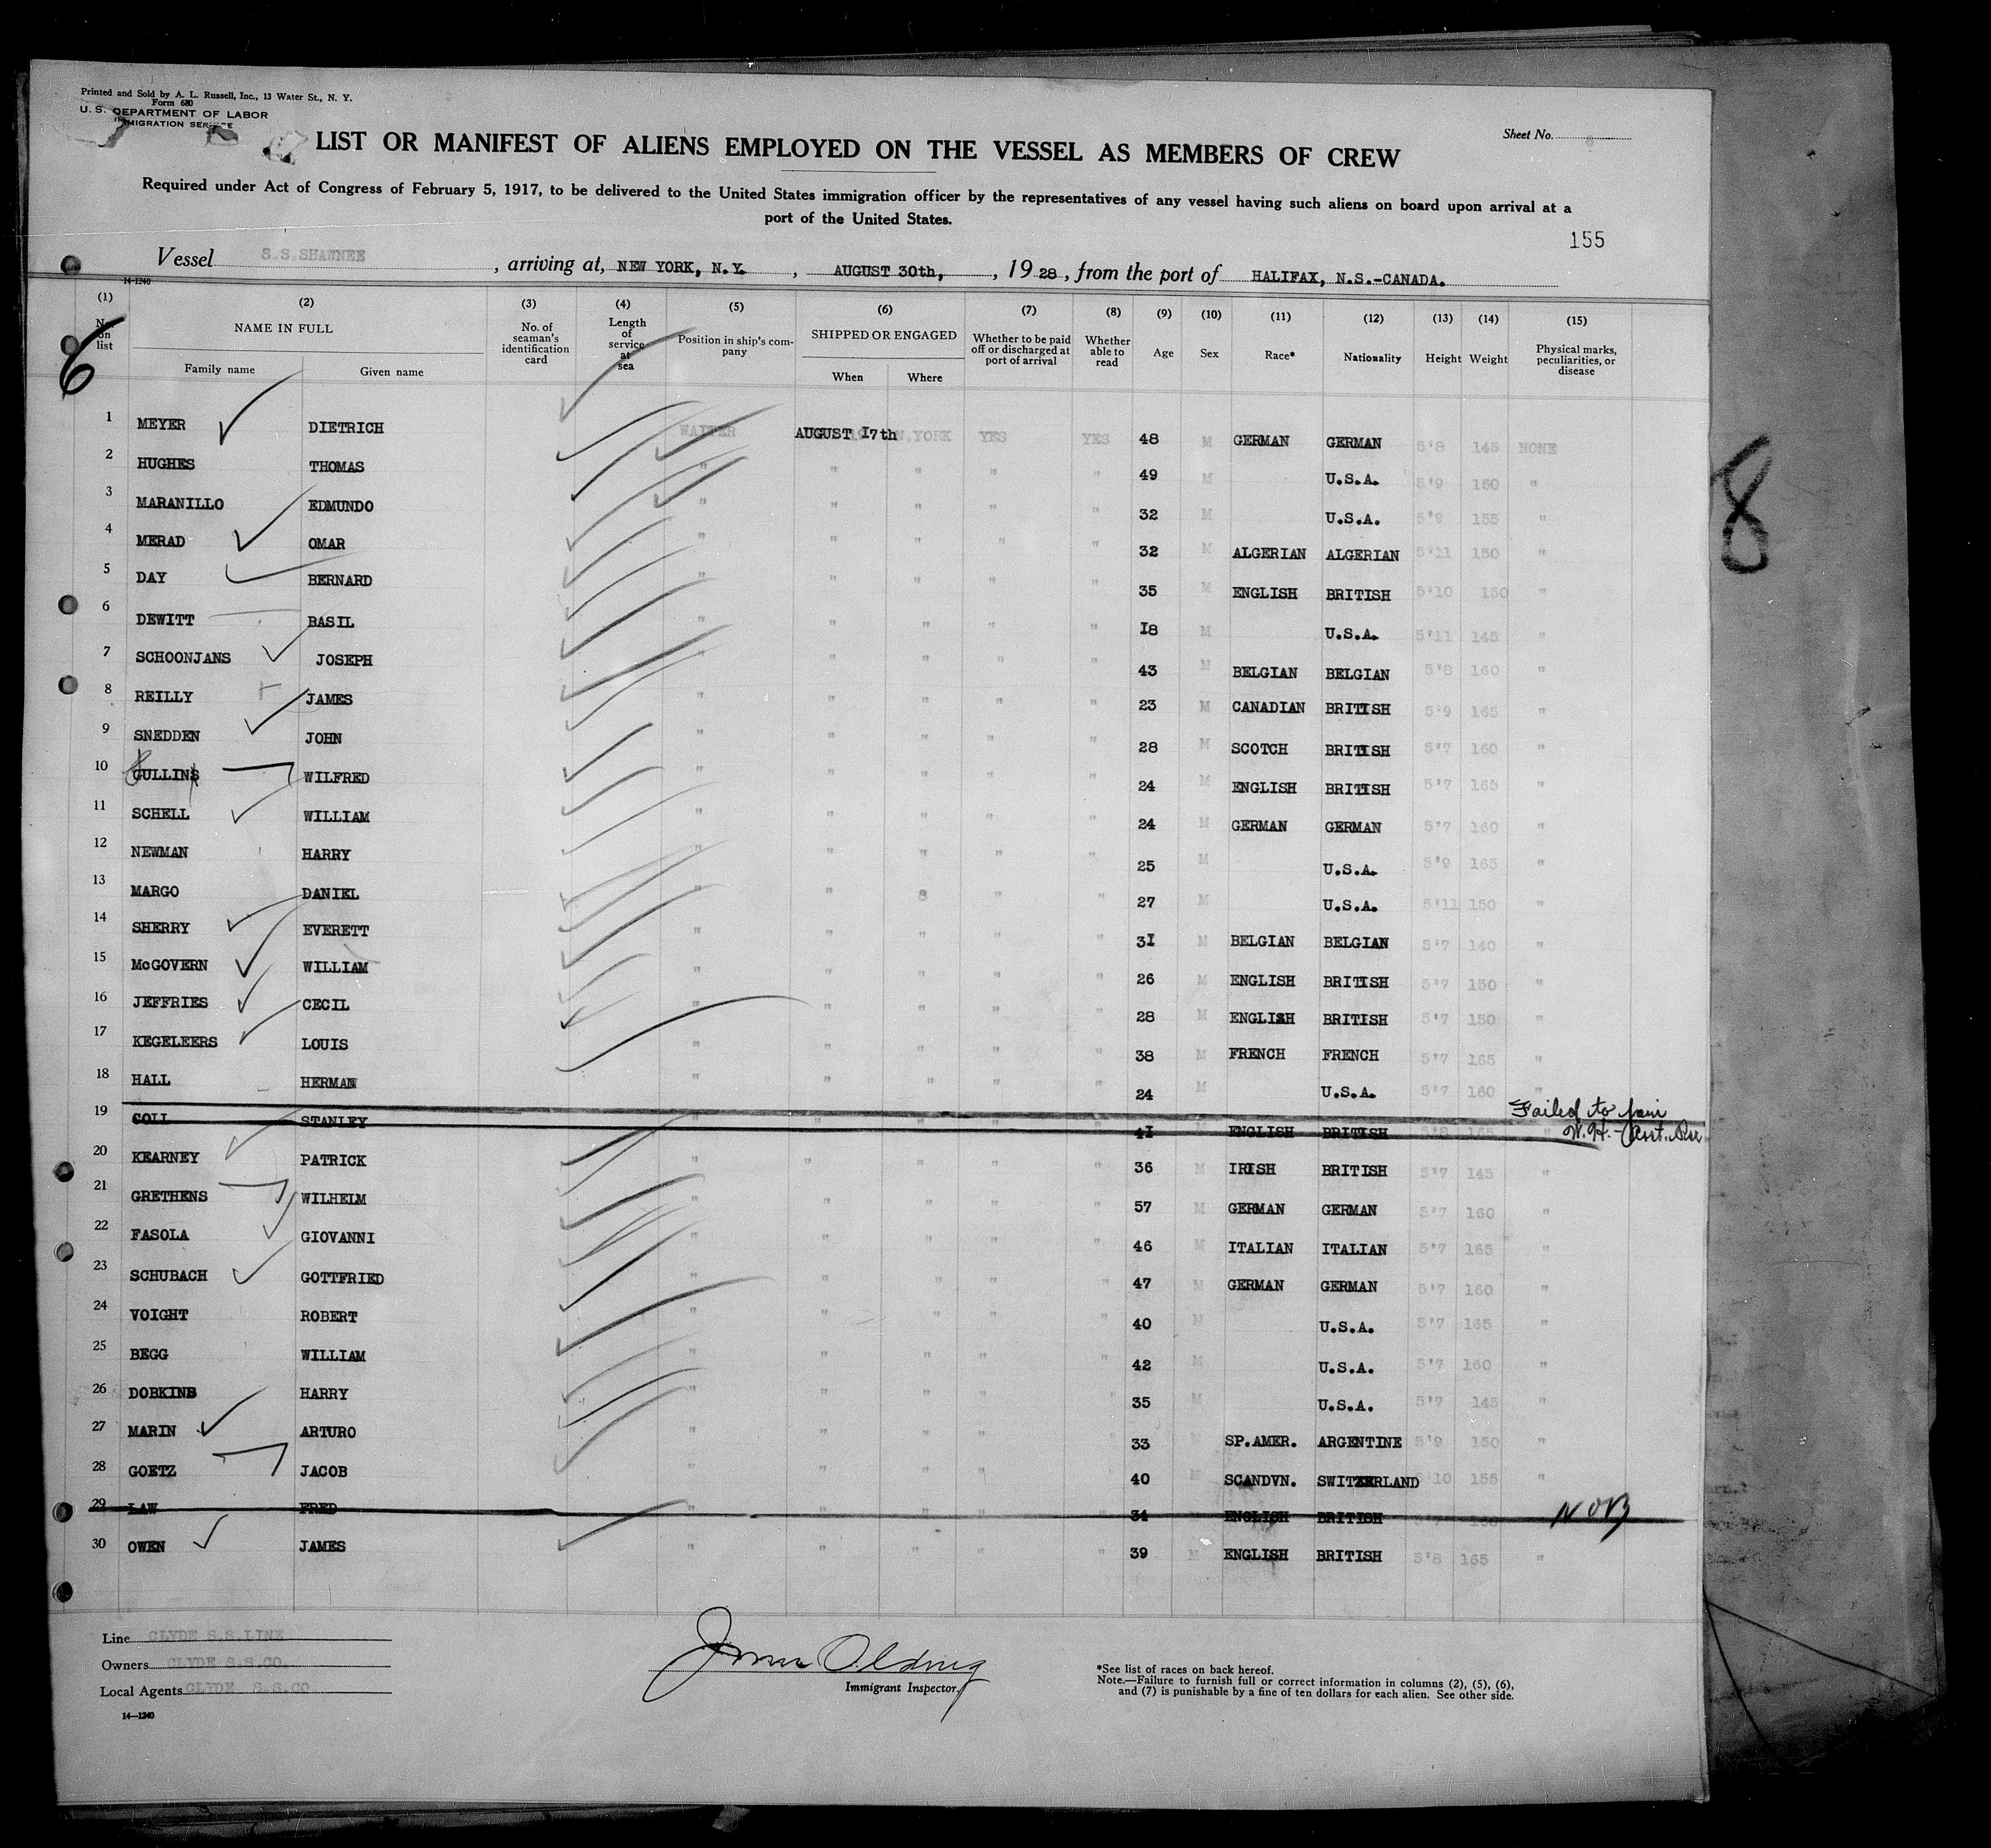 Printed and Sold by A. L. Russell, Inc., 13 Water St., N. Y.
Form 680
U. S. DEPARTMENT OF LABOR
IMMIGRATION SERVICE
Sheet No. 6
LIST OR MANIFEST OF ALIENS EMPLOYED ON THE VESSEL AS MEMBERS OF CREW
Required under Act of Congress of February 5, 1917, to be delivered to the United States immigration officer by the representatives of any vessel having such aliens on board upon arrival at a
port of the United States.
155
Vessel S.S.SHAWNEE, arriving at, NEW YORK, N.Y., AUGUST 30th,, 1928, from the port of HALIFAX, N.S.-CANADA.
14-1240
(1) (2) (3) (4) (5) (6) (7) (8) (9) (10) (11) (12) (13) (14) (15)
No. on list NAME IN FULL Family name Given name No. of seaman's identification card Length of service at sea Position in ship's company SHIPPED OR ENGAGED When Where Whether to be paid off or discharged at port of arrival Whether able to read Age Sex Race* Nationality Height Weight Physical marks, peculiarities, or disease
6
8
1 MEYER DIETRICH WAITER AUGUST 17th N.YORK YES YES 48 M GERMAN GERMAN 5'8 145 NONE
2 HUGHES THOMAS " " " " " 49 M U.S.A. 5'9 150 "
3 MARANILLO EDMUNDO " " " " " 32 M U.S.A. 5'9 155 "
4 MERAD OMAR " " " " " 32 M ALGERIAN ALGERIAN 5'11 150 "
5 DAY BERNARD " " " " " 35 M ENGLISH BRITISH 5'10 150 "
6 DEWITT BASIL " " " " " 18 M U.S.A. 5'11 145 "
7 SCHOONJANS JOSEPH " " " " " 43 M BELGIAN BELGIAN 5'8 160 "
8 REILLY JAMES " " " " " 23 M CANADIAN BRITISH 5'9 165 "
9 SNEDDEN JOHN " " " " " 28 M SCOTCH BRITISH 5'7 160 "
10 GULLINS WILFRED " " " " " 24 M ENGLISH BRITISH 5'7 165 "
11 SCHELL WILLIAM " " " " " 24 M GERMAN GERMAN 5'7 160 "
12 NEWMAN HARRY " " " " " 25 M U.S.A. 5'9 165 "
13 MARGO DANIEL " " " " 27 M U.S.A. 5'11 150 "
14 SHERRY EVERETT " " " " " 31 M BELGIAN BELGIAN 5'7 140 "
15 McGOVERN WILLIAM " " " " " 26 M ENGLISH BRITISH 5'7 150 "
16 JEFFRIES CECIL " " " " " 28 M ENGLISH BRITISH 5'7 150 "
17 KEGELEERS LOUIS " " " " " 38 M FRENCH FRENCH 5'7 165 "
18 HALL HERMAN " " " " " 24 M U.S.A. 5'7 160 "
19 COLL STANLEY " " " " " 41 ENGLISH BRITISH 5'8 165 " Failed to join
W.H.
20 KEARNEY PATRICK " " " " " 36 M IRISH BRITISH 5'7 145 "
21 GRETHENS WILHELM " " " " " 57 M GERMAN GERMAN 5'7 160 "
22 FASOLA GIOVANNI " " " " " 46 M ITALIAN ITALIAN 5'7 165 "
23 SCHUBACH GOTTFRIED " " " " " 47 M GERMAN GERMAN 5'7 160 "
24 VOIGHT ROBERT " " " " " 40 M U.S.A. 5'7 165 "
25 BEGG WILLIAM " " " " " 42 M U.S.A. 5'7 160 "
26 DOBKINS HARRY " " " " " 35 M U.S.A. 5'7 145 "
27 MARIN ARTURO " " " " " 33 M SP.AMER. ARGENTINE 5'9 150 "
28 GOETZ JACOB " " " " " 40 M SCANDVN. SWITZERLAND 5'10 155 "
29 LAW FRED " " " " " 34 ENGLISH BRITISH NOB
30 OWEN JAMES " " " " " 39 M ENGLISH BRITISH 5'8 165 "
Line CLYDE S.S.LINE
Owners CLYDE S.S.CO.
Local Agents CLYDE S.S.CO
14—1240
Olding
Immigrant Inspector.
*See list of races on back hereof.
Note.—Failure to furnish full or correct information in columns (2), (5), (6),
and (7) is punishable by a fine of ten dollars for each alien. See other side.